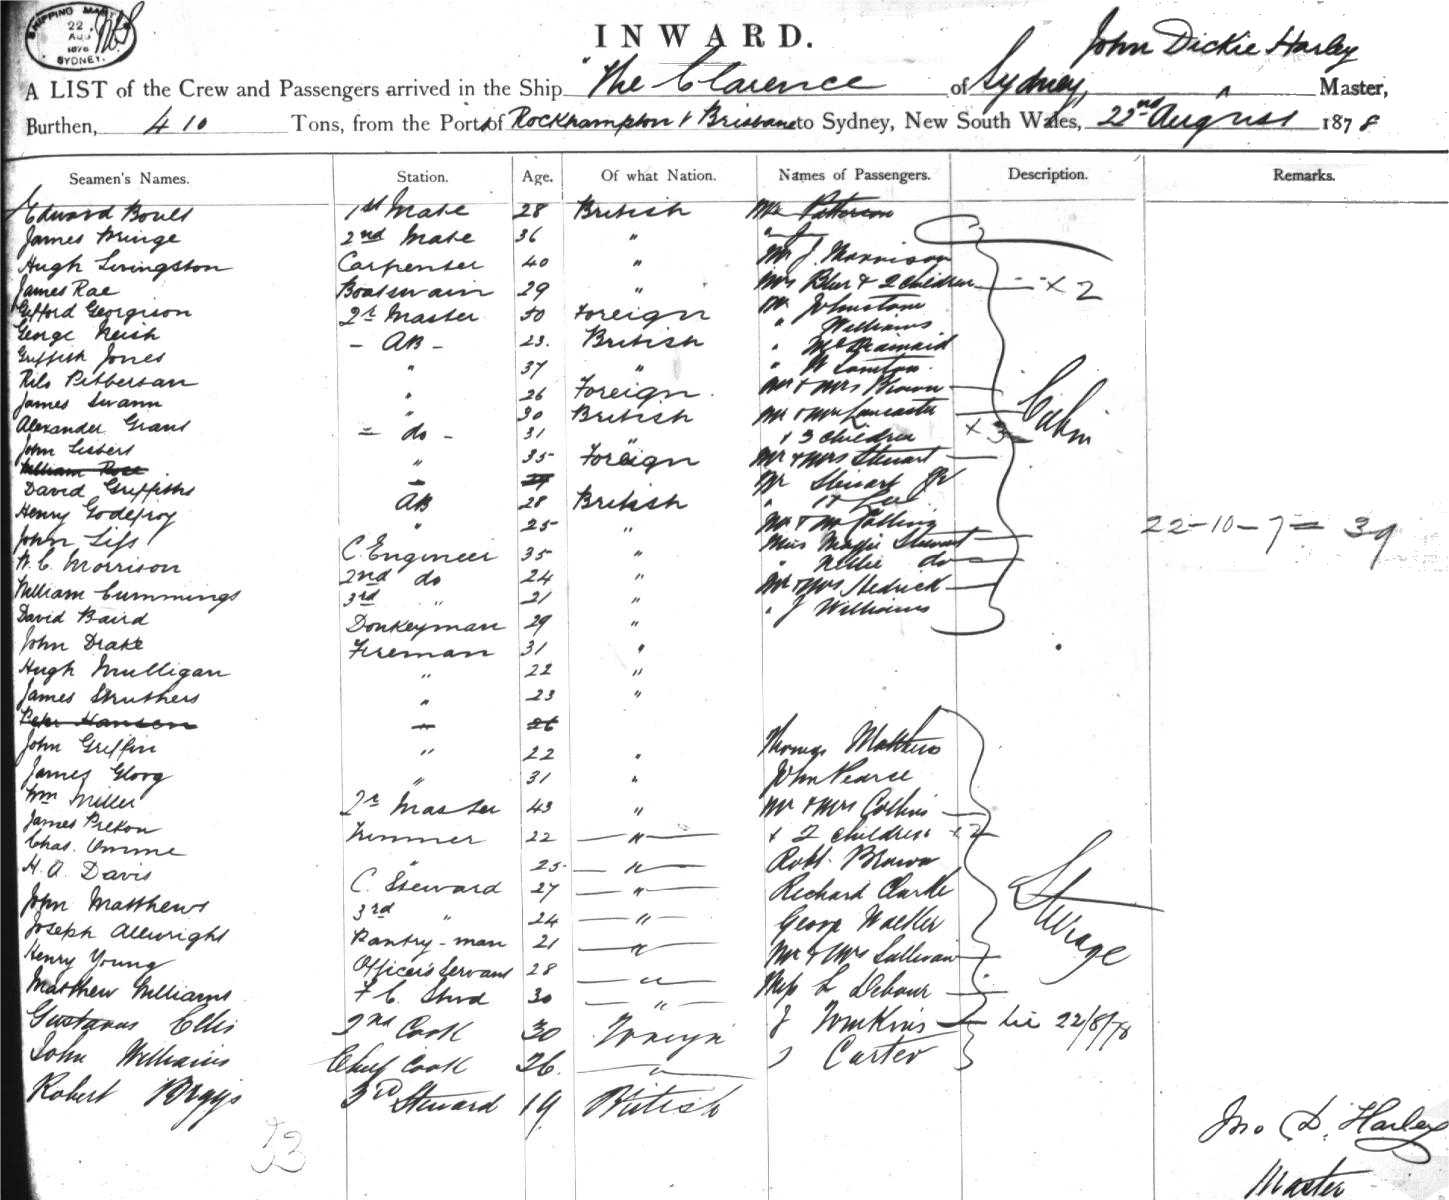 SHIPPING MASTER'S
22
AUG
1878
SYDNEY.
INWARD.
John Dickie Harley
A LIST of the Crew and Passengers arrived in the Ship "The Clarence of Sydney, Master,
Burthen, 410 Tons, from the Port of Rockhampton & Brisbane to Sydney, New South Wales, 22nd August 1878
Seamen's Names. Station. Age. Of what Nation. Names of Passengers. Description. Remarks.
Edward Boult 1st Mate 28 British Mr Patterson
James Pringe 2nd Mate 36 "
Hugh Livingston Carpenter 40 " Mr J. Morrison
James Rae Boatswain 29 " Mrs Blur & 2 children x 2
Gifford Georgison 2r Master 50 Foreign Mr Johnstone
George Neish - AB - 23. British " Williams
Griffith Jones " 37 "
Nils Petterson " 26 Foreign " W Lamton
James Swann " 30 British Mr & Mrs Brown
Alexander Grant = do - 31 " Mr & Mrs Lancaster
John Siebert " 35 Foreign & 3 children x 3
William Rose 29 Mr & Mrs Stewart
David Griffiths AB 28 British Mr Stewart Jr
Henry Godefroy " 25 " " Lee
John Siss C. Engineer 35 " Mr & Mrs
W. C. Morrison 2nd do 24 " Miss Maggie Stewart
William Cummings 3rd " 21 " " Nellie do
David Baird Donkeyman 29 " Mr & Mrs Hedrick
John Drake Fireman 31 " " J Williams
Cabin
22-10-7= 39
Hugh Mulligan " 22 "
James Struthers " 23 "
Peter Hansen 26
John Griffin " 22 " Thomas Matthews
James Glorg " 31 " John Pearce
Wm Miller 2r Master 43 " Mr & Mrs Collins
James Pilton Trimmer 22 " & 2 children x 2
Chas. Omme " 25 " Robt. Brown
H. A. Davis C. Steward 27 " Richard Clarke
John Matthews 3rd " 24 " George Walker
Joseph Allwright Pantry-man 21 " Mr & Mrs Sullivan
Henry Young Officer's Servant 28 " Miss L Debour
Matthew Williams F C. Stwd 30 "
Steerage
Gustavus Ellis 2nd Cook 30 Foreign J Tomkins 22/8/78
John Williams Chief Cook 26. " " Carter
Robert Briggs 3rd Steward 19 British
33
Jno D. Harley
Master